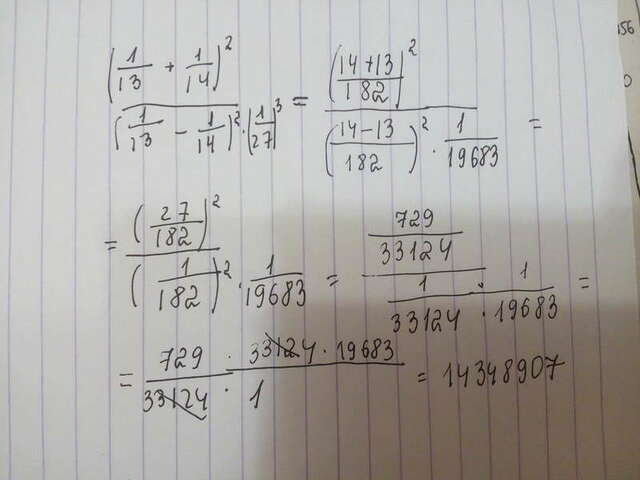 \frac{\left(\frac{1}{13} + \frac{1}{14}\right)^2}{\left(\frac{1}{13} - \frac{1}{14}\right)^2 \cdot \left(\frac{1}{27}\right)^3} = \frac{\left(\frac{14+13}{182}\right)^2}{\left(\frac{14-13}{182}\right)^2 \cdot \frac{1}{19683}} =
= \frac{\left(\frac{27}{182}\right)^2}{\left(\frac{1}{182}\right)^2 \cdot \frac{1}{19683}} = \frac{\frac{729}{33124}}{\frac{1}{33124} \cdot \frac{1}{19683}} =
= \frac{729}{33124} \cdot \frac{33124 \cdot 19683}{1} = 14348907